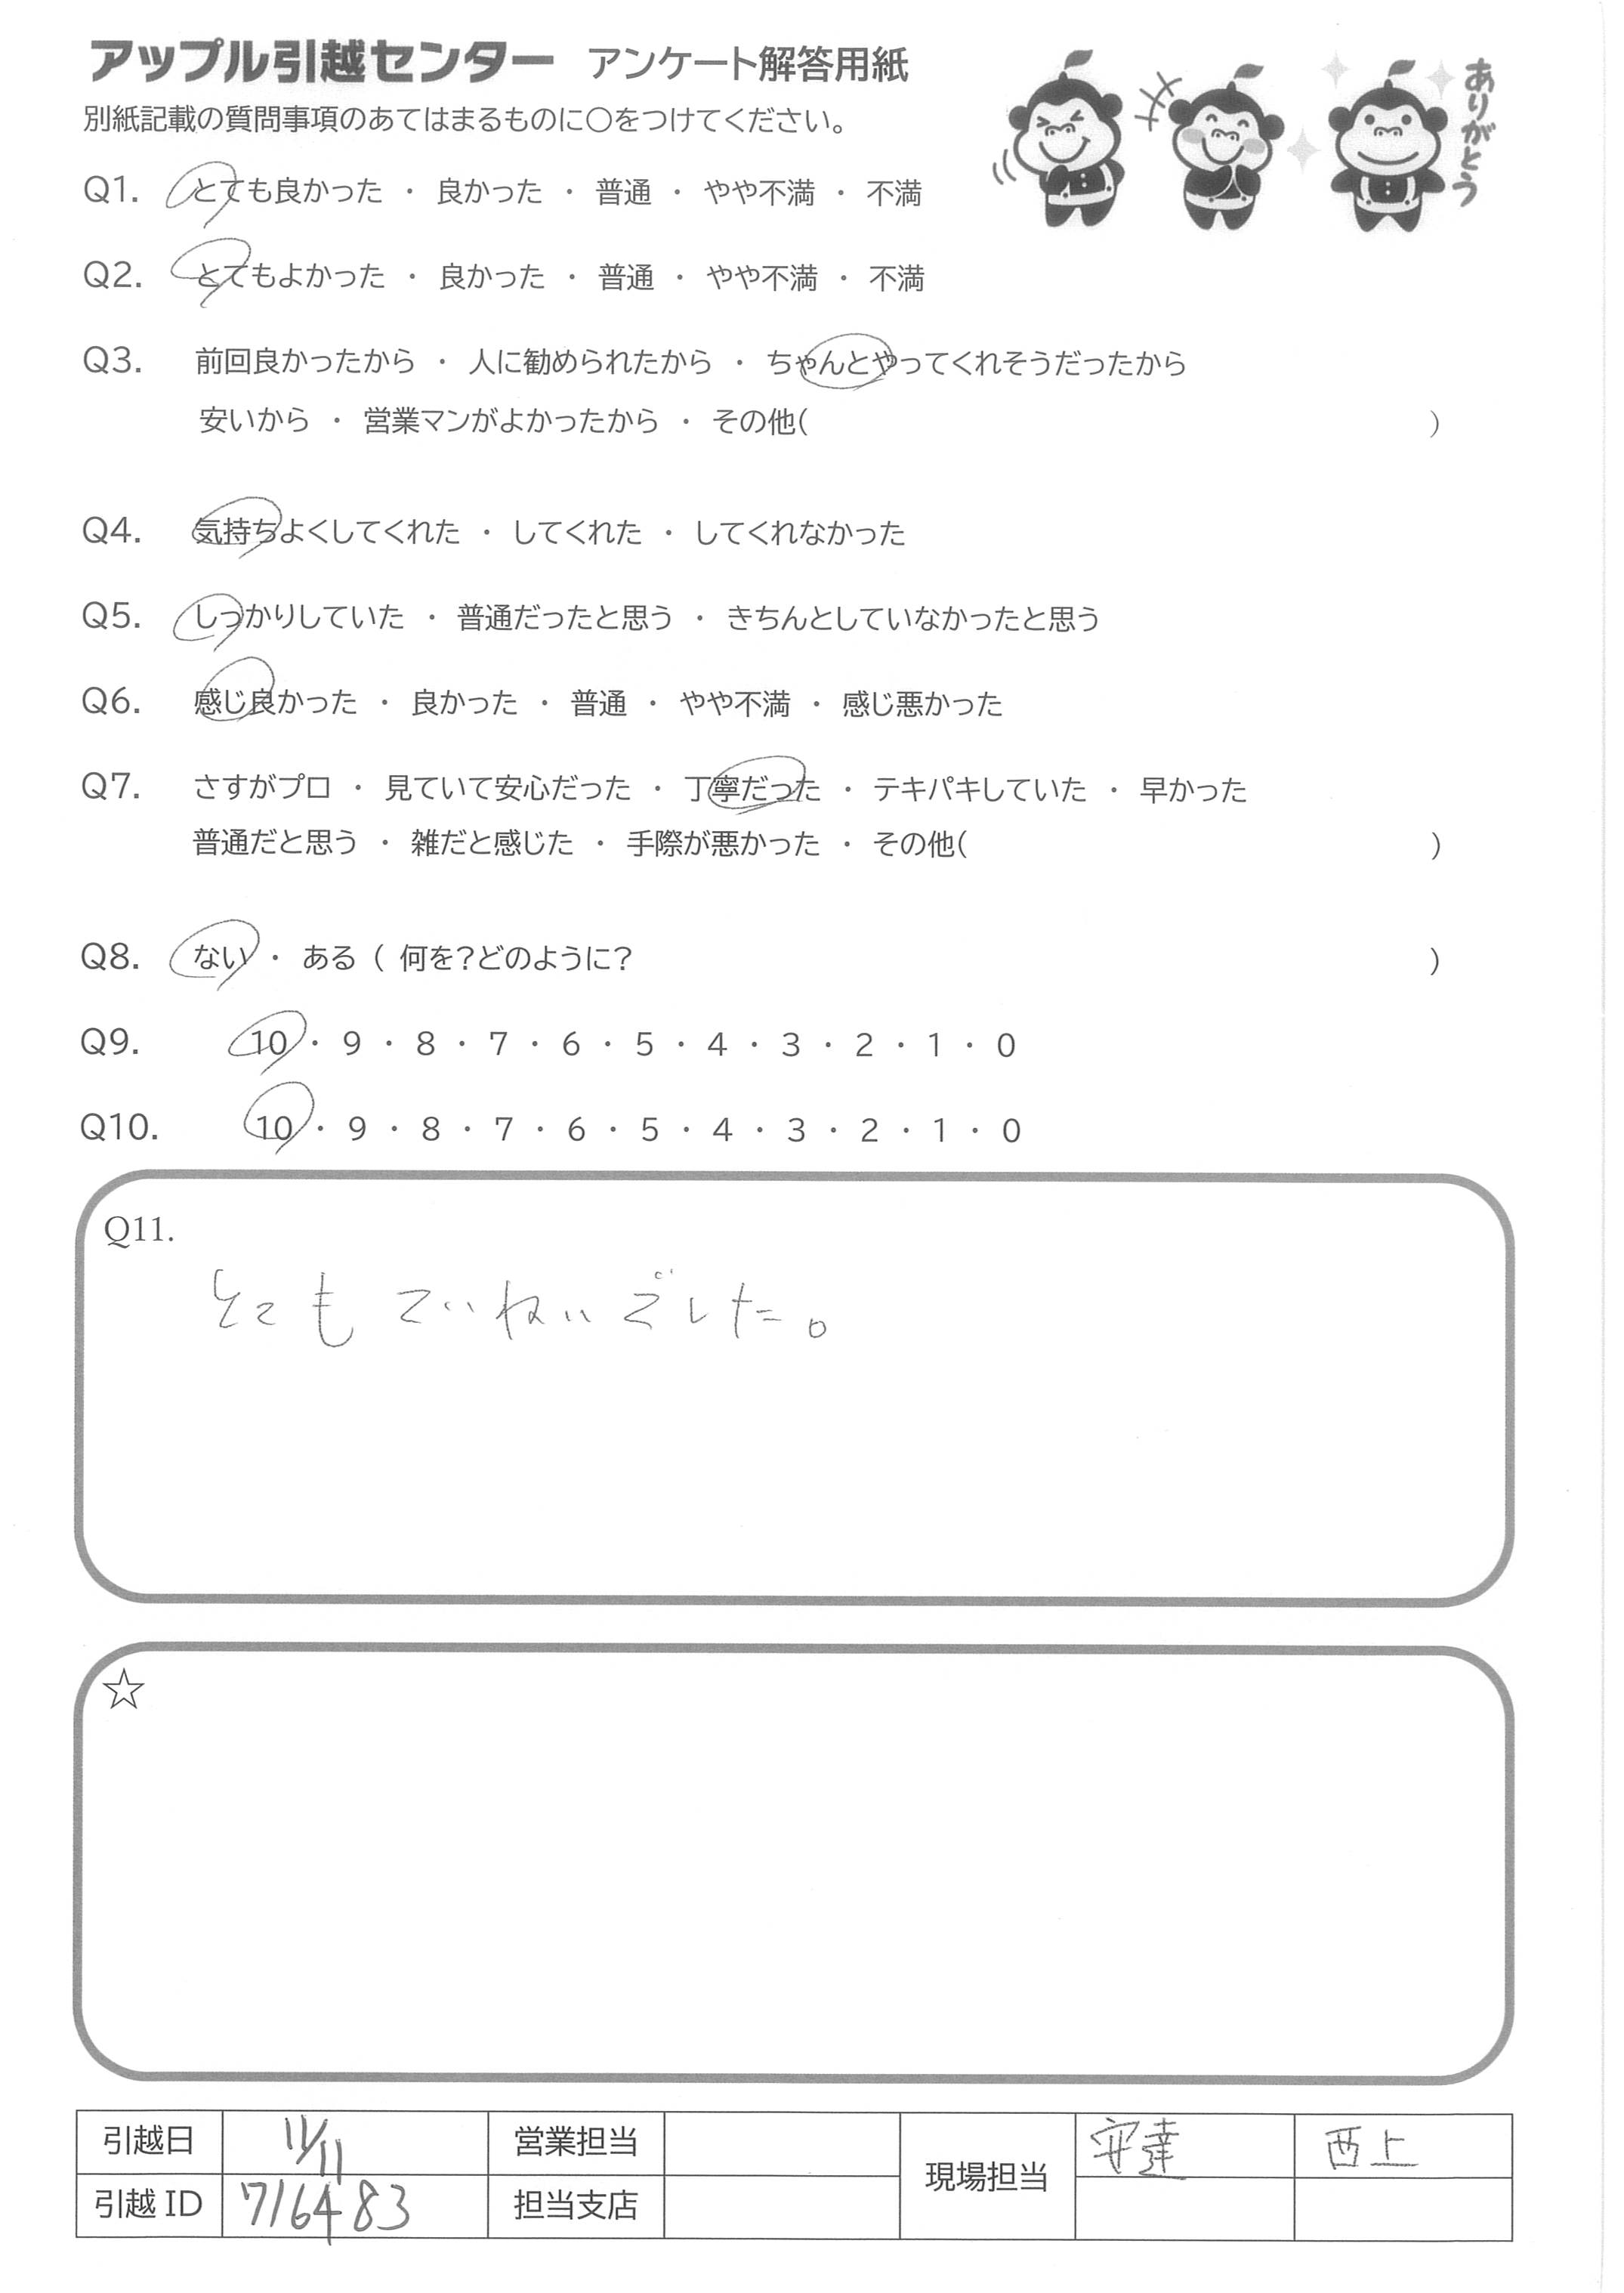 アップル引越センター アンケート解答用紙
ありがとう
別紙記載の質問事項のあてはまるものに〇をつけてください。
Q1. とても良かった ・ 良かった ・ 普通 ・ やや不満 ・ 不満
Q2. とてもよかった ・ 良かった ・ 普通 ・ やや不満 ・ 不満
Q3. 前回良かったから ・ 人に勧められたから ・ ちゃんとやってくれそうだったから
安いから ・ 営業マンがよかったから ・ その他( )
Q4. 気持ちよくしてくれた ・ してくれた ・ してくれなかった
Q5. しっかりしていた ・ 普通だったと思う ・ きちんとしていなかったと思う
Q6. 感じ良かった ・ 良かった ・ 普通 ・ やや不満 ・ 感じ悪かった
Q7. さすがプロ ・ 見ていて安心だった ・ 丁寧だった ・ テキパキしていた ・ 早かった
普通だと思う ・ 雑だと感じた ・ 手際が悪かった ・ その他( )
Q8. ない ・ ある ( 何を?どのように? )
Q9. 10 ・ 9 ・ 8 ・ 7 ・ 6 ・ 5 ・ 4 ・ 3 ・ 2 ・ 1 ・ 0
Q10. 10 ・ 9 ・ 8 ・ 7 ・ 6 ・ 5 ・ 4 ・ 3 ・ 2 ・ 1 ・ 0
Q11.
とても ていねいでした。
☆
引越日 11/11 営業担当 現場担当 安達 西上
引越ID 716483 担当支店